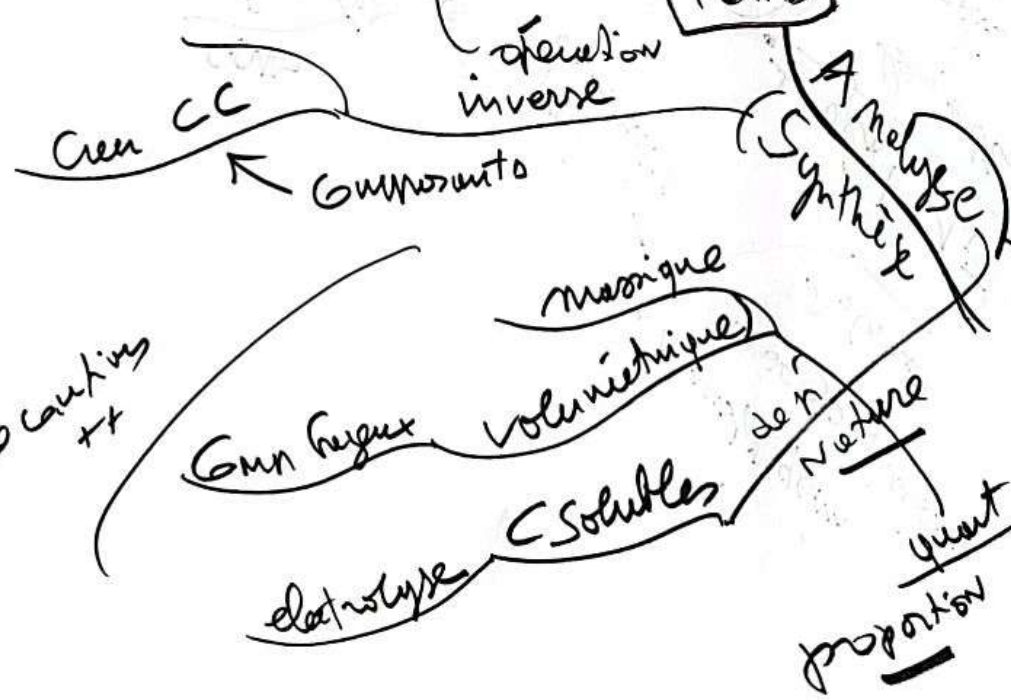 opération
inverse
Créer CC
Composants
Analyse
Synthèse
massique
volumétrique
Comp gazeux
C Solubles
electrolyse
Nature
quant
proportion
++